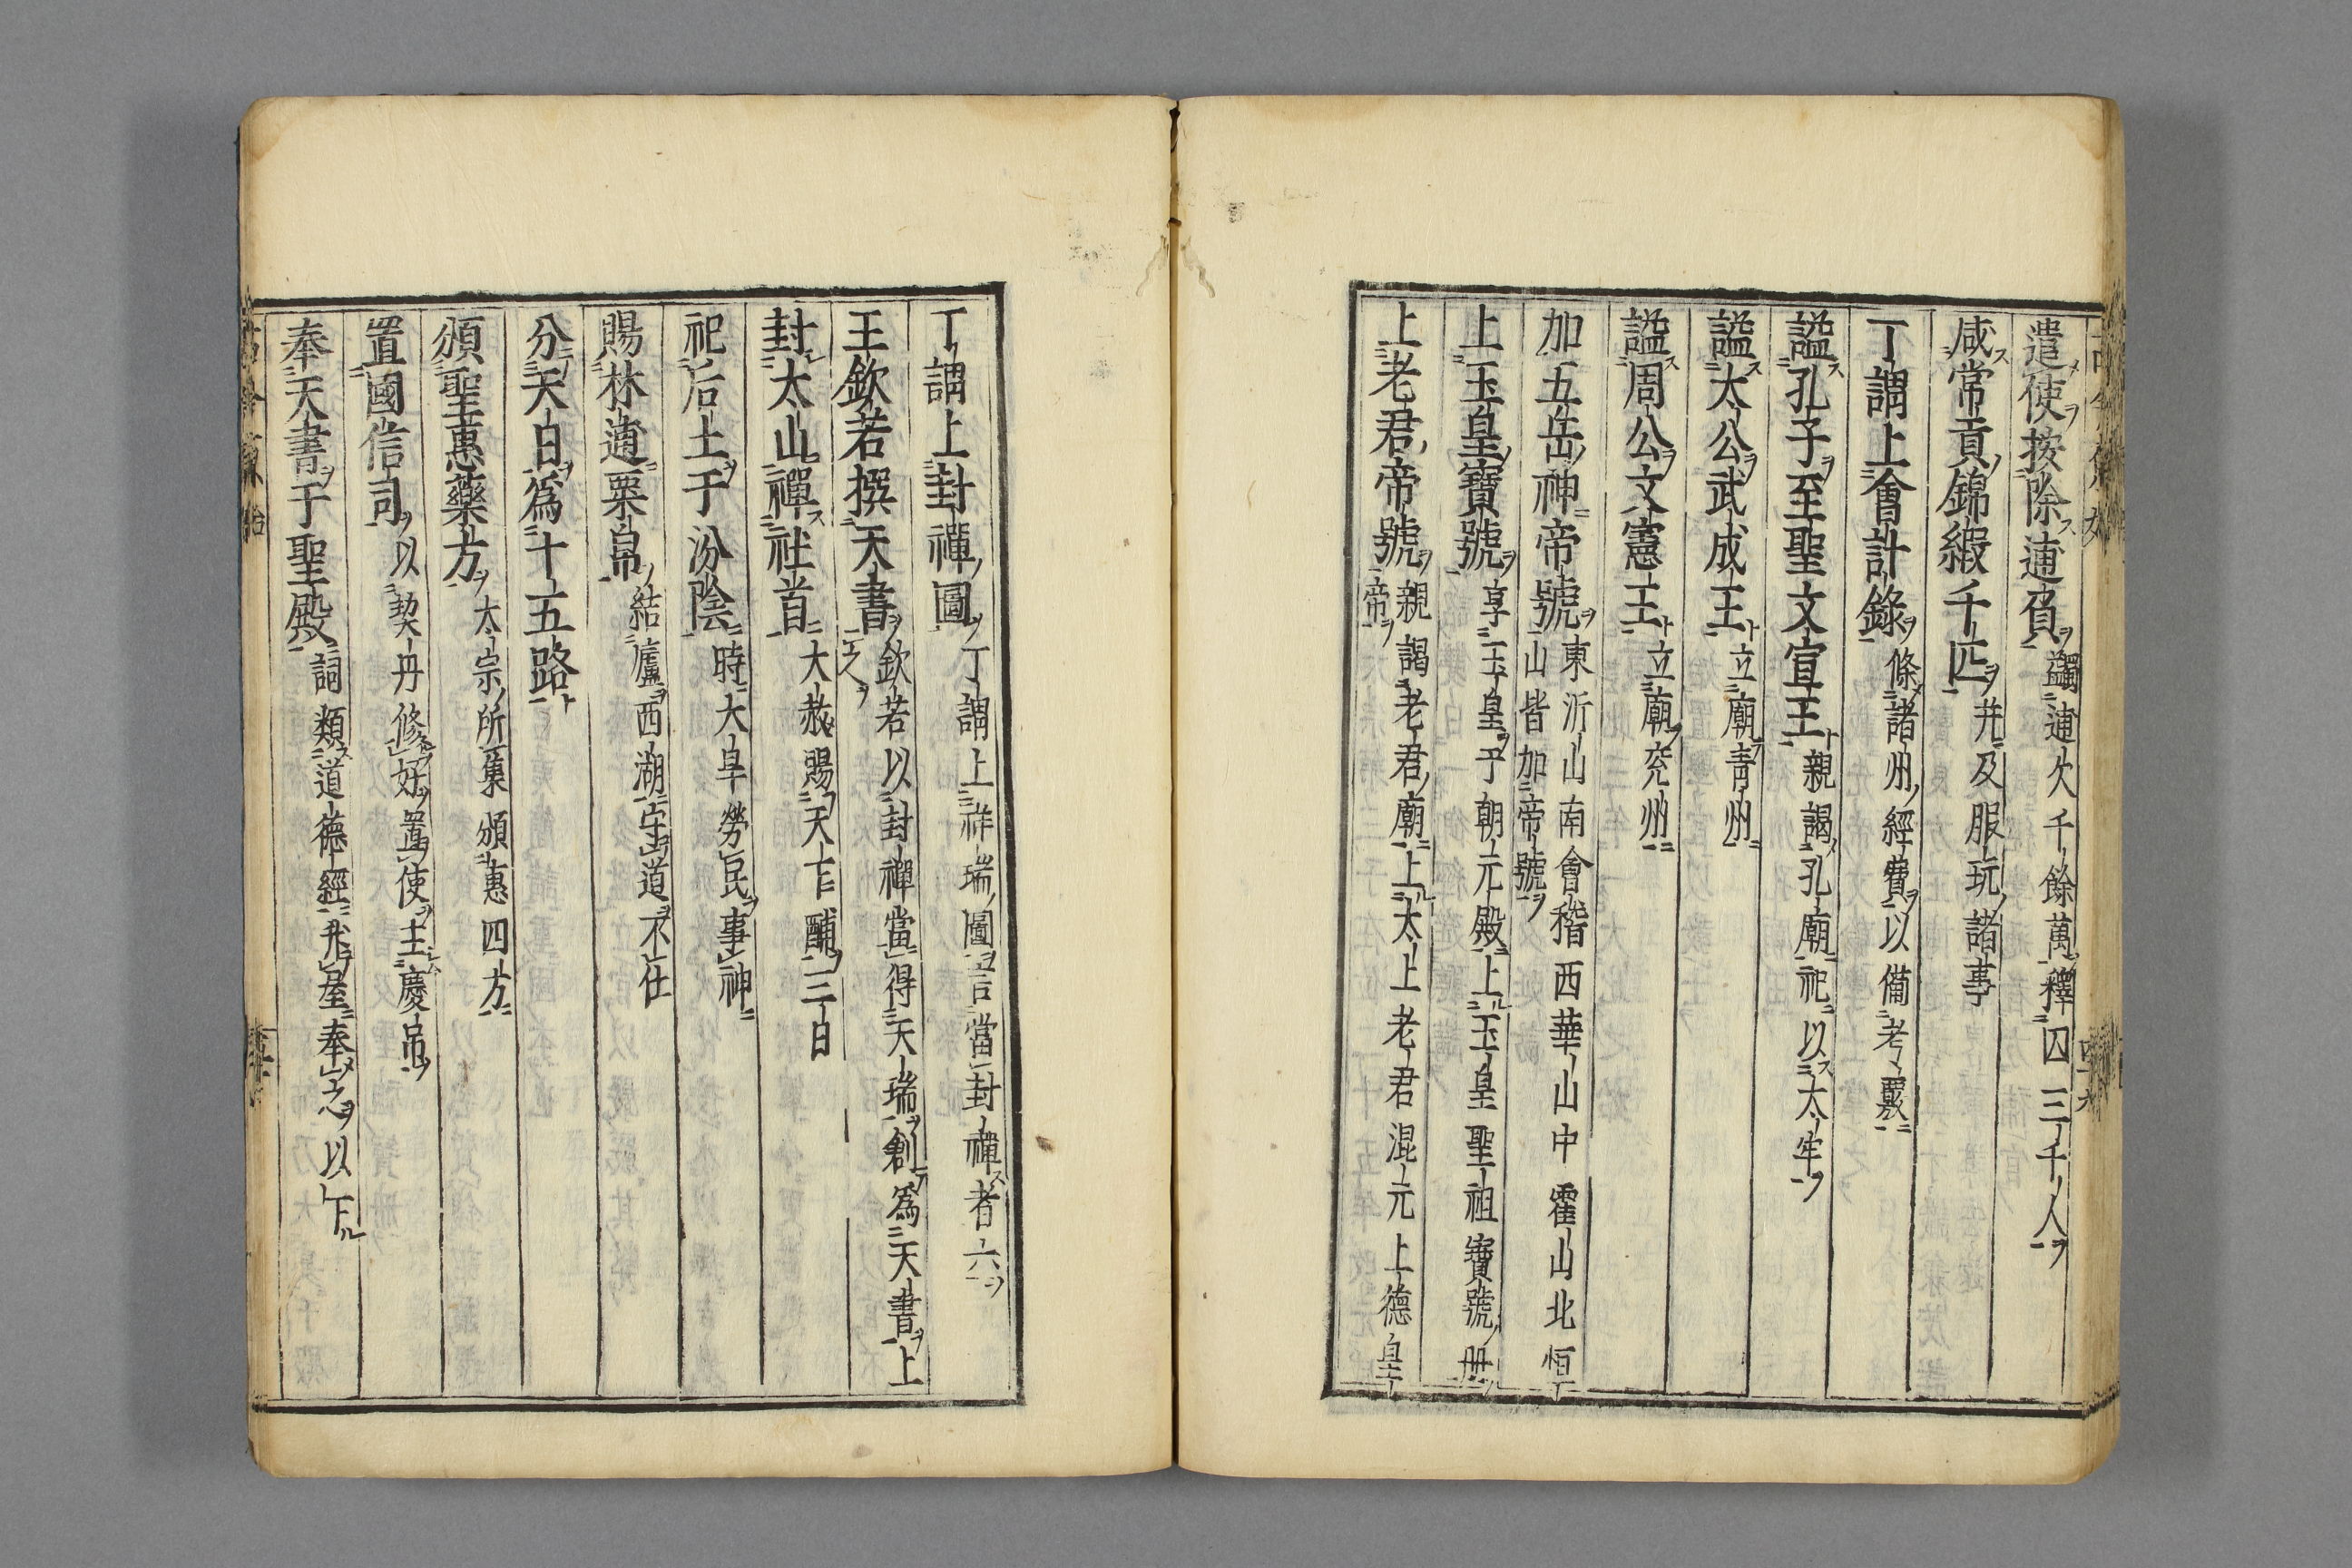 遣使按除逋負 蠲逋欠千餘萬釋囚三千人
咸常貢錦緞千匹 并及服玩諸事
丁謂上會計錄 條諸州經費以備考覈
謚孔子至聖文宣王 親謁孔廟祀以太牢
謚太公武成王 立廟青州
謚周公文憲王 立廟兖州
加五岳神帝號 東沂山南會稽西華山中霍山北恒
山皆加帝號
上玉皇寶號 享玉皇于朝元殿上玉皇聖祖寶號册
上老君帝號 親謁老君廟上太上老君混元上德皇
帝
丁謂上封禪圖 丁謂上祥瑞圖言當封禪者六
王欽若撰天書 欽若以封禪當得天瑞創爲天書上
之
封太山禪社首 大赦賜天下酺三日
祀后土于汾陰 時大旱勞民事神
賜林逋粟帛 結廬西湖守道不仕
分天白爲十五路
頒聖惠藥方 太宗所集頒惠四方
置國信司 以契丹修好置使主慶吊
奉天書于聖殿 詞類道德經升屋奉之以下